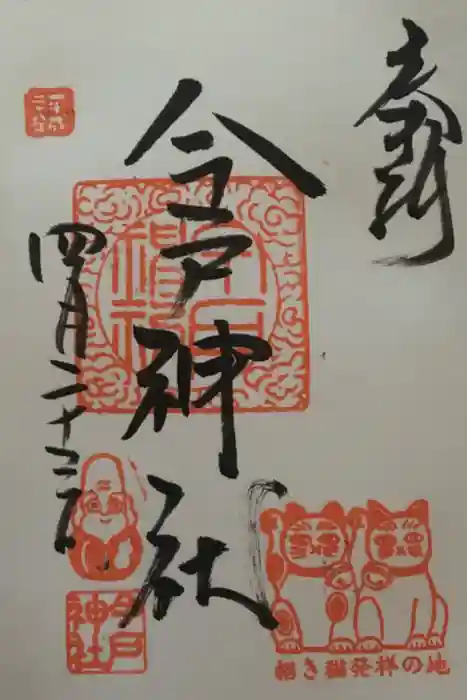 奉拝
今戸神社
四月二十二日
今戸神社
今戸神社
招き猫発祥の地